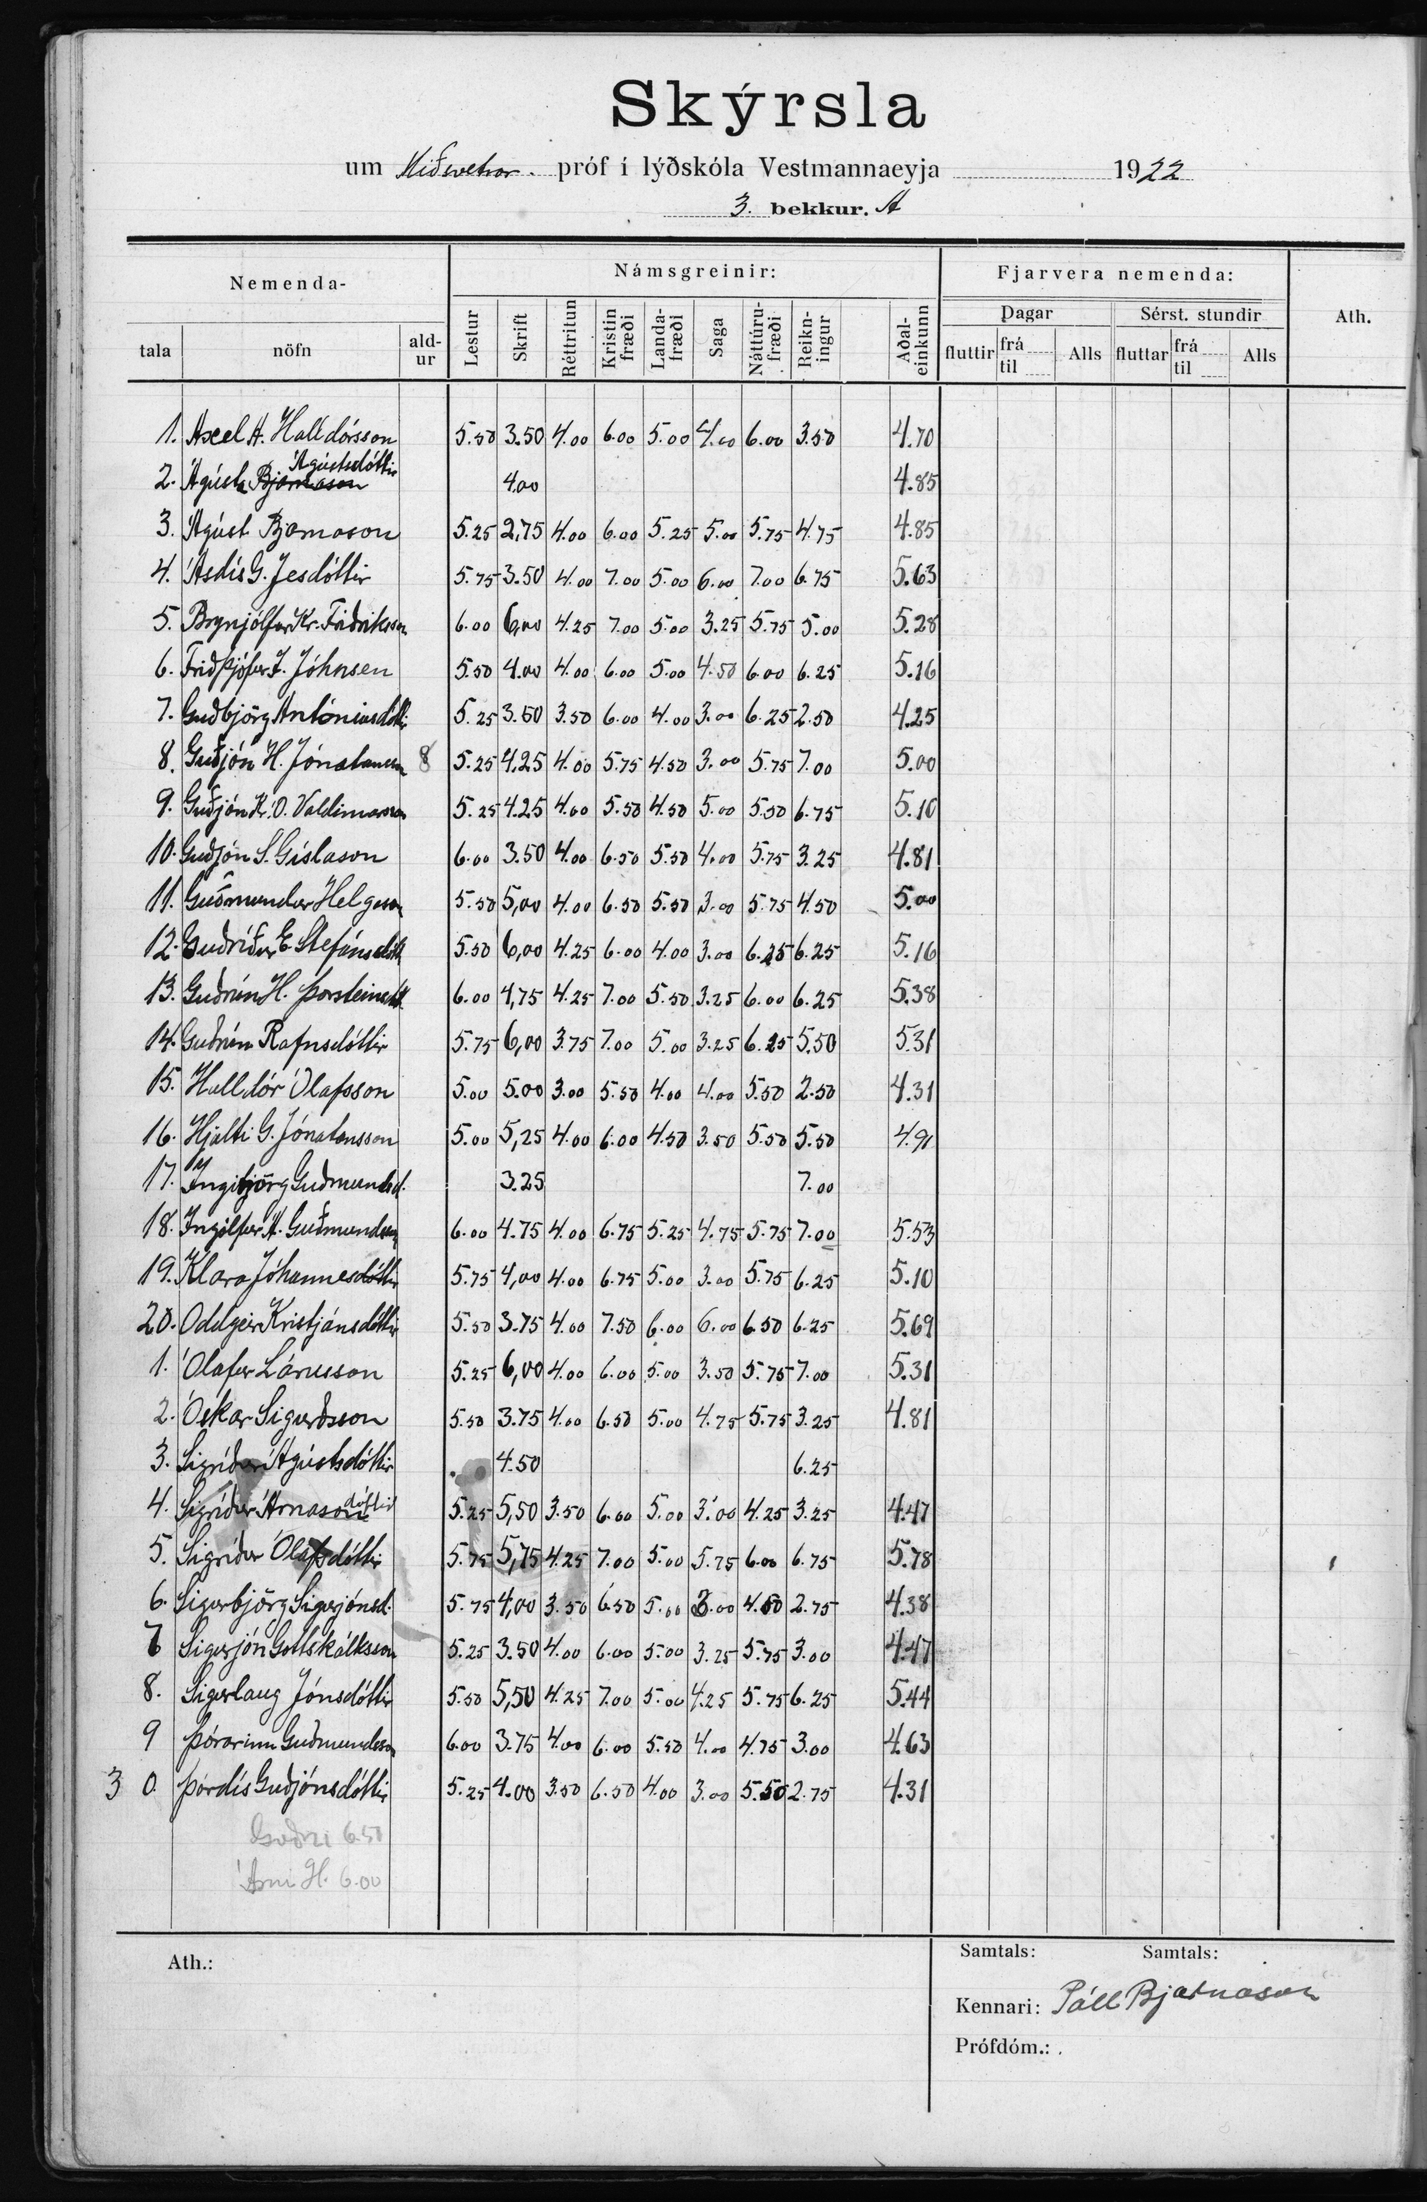 Skýrsla
um Miðvetrar próf í lýðskóla Vestmannaeyja 1922
3. bekkur. A
Nemenda- Námsgreinir: Fjarvera nemenda: Ath.
tala nöfn aldur Lestur Skrift Réttritun Kristinfræði Landafræði Saga Náttúrufræði Reikningur Aðaleinkunn
Dagar Sérst. stundir
fluttir frá til Alls fluttar frá til Alls
1. Axel A. Halldórsson 5.50 3.50 4.00 6.00 5.00 4.00 6.00 3.50 4.70
2. Ágústa Bjarnason Ágústsdóttir 4.00 4.85
3. Ágúst Bjarnason 5.25 2,75 4.00 6.00 5.25 5.00 5.75 4.75 4.85
4. Ásdís G. Jesdóttir 5.75 3.50 4.00 7.00 5.00 6.00 7.00 6.75 5.63
5. Brynjólfur Kr. Friðriksson 6.00 6,00 4.25 7.00 5.00 3.25 5.75 5.00 5.28
6. Friðþjófur J. Jóhnsen 5.50 4.00 4.00 6.00 5.00 4.50 6.00 6.25 5.16
7. Guðbjörg Antóníusdóttir 5.25 3.50 3.50 6.00 4.00 3.00 6.25 2.50 4.25
8. Guðjón H. Jónatansson 8 5.25 4,25 4.00 5.75 4.50 3.00 5.75 7.00 5.00
9. Guðjón Kr. Ó. Valdimarsson 5.25 4.25 4.00 5.50 4.50 5.00 5.50 6.75 5.10
10. Guðjón S. Gíslason 6.00 3.50 4.00 6.50 5.50 4.00 5.75 3.25 4.81
11. Guðmundur Helgason 5.50 5,00 4.00 6.50 5.50 3.00 5.75 4.50 5.00
12. Guðríður E Stefánsdótt 5.50 6,00 4.25 6.00 4.00 3.00 6.25 6.25 5.16
13. Guðrún H. Þorsteinsd. 6.00 4,75 4.25 7.00 5.50 3.25 6.00 6.25 5.38
14. Guðrún Rafnsdóttir 5.75 6,00 3.75 7.00 5.00 3.25 6.25 5.50 5.31
15. Halldór Ólafsson 5.00 5.00 3.00 5.50 4.00 4.00 5.50 2.50 4.31
16. Hjalti G. Jónatansson 5.00 5,25 4.00 6.00 4.50 3.50 5.50 5.50 4.91
17. Ingibjörg Guðmundsd. 3.25 7.00
18. Ingólfur A. Guðmundsson 6.00 4.75 4.00 6.75 5.25 4.75 5.75 7.00 5.53
19. Klara Jóhannesdóttir 5.75 4,00 4.00 6.75 5.00 3.00 5.75 6.25 5.10
20. Oddgeir Kristjánsdóttir 5.50 3.75 4.00 7.50 6.00 6.00 6.50 6.25 5.69
1. Ólafur Lárusson 5.25 6,00 4.00 6.00 5.00 3.50 5.75 7.00 5.31
2. Óskar Sigurðsson 5.50 3.75 4.00 6.50 5.00 4.75 5.75 3.25 4.81
3. Sigríður Ágústsdóttir 4.50 6.25
4. Sigríður Árnason dóttir 5.25 5,50 3.50 6.00 5.00 3.00 4.25 3.25 4.47
5. Sigríður Ólafsdóttir 5.75 5,75 4.25 7.00 5.00 5.75 6.00 6.75 5.78
6. Sigurbjörg Sigurjónsd. 5.75 4,00 3.50 6.50 5.00 3.00 4.50 2.75 4.38
7 Sigurjón Gottskálksson 5.25 3.50 4.00 6.00 5.00 3.25 5.75 3.00 4.47
8. Sigurlaug Jónsdóttir 5.50 5,50 4.25 7.00 5.00 4.25 5.75 6.25 5.44
9 Þórarinn Guðmundsson 6.00 3.75 4.00 6.00 5.50 4.00 4.75 3.00 4.63
30. Þórdís Guðjónsdóttir 5.25 4.00 3.50 6.50 4.00 3.00 5.50 2.75 4.31
6.50
Árni H. 6.00
Ath.:
Samtals: Samtals:
Kennari: Páll Bjarnason
Prófdóm.: